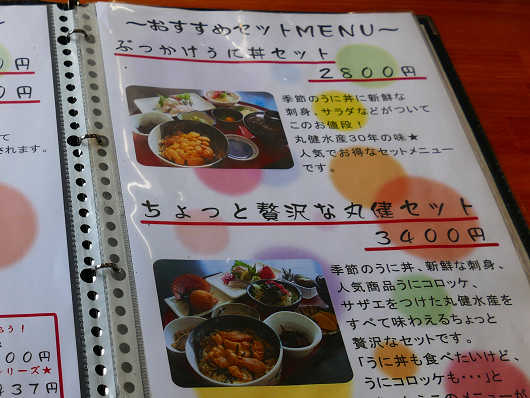 ～おすすめセットMENU～
ぶっかけうに丼セット
2800円
季節のうに丼に新鮮な
刺身、サラダなどがついて
このお値段！
丸健水産30年の味★
人気でお得なセットメニュー
です。
ちょっと贅沢な丸健セット
3400円
季節のうに丼、新鮮な刺身、
人気商品うにコロッケ、
サザエをつけた丸健水産を
すべて味わえるちょっと
贅沢なセットです。
「うに丼も食べたいけど、
うにコロッケも・・・」と
円
0円
て
されます。
う！
000円
リーズ★
437円